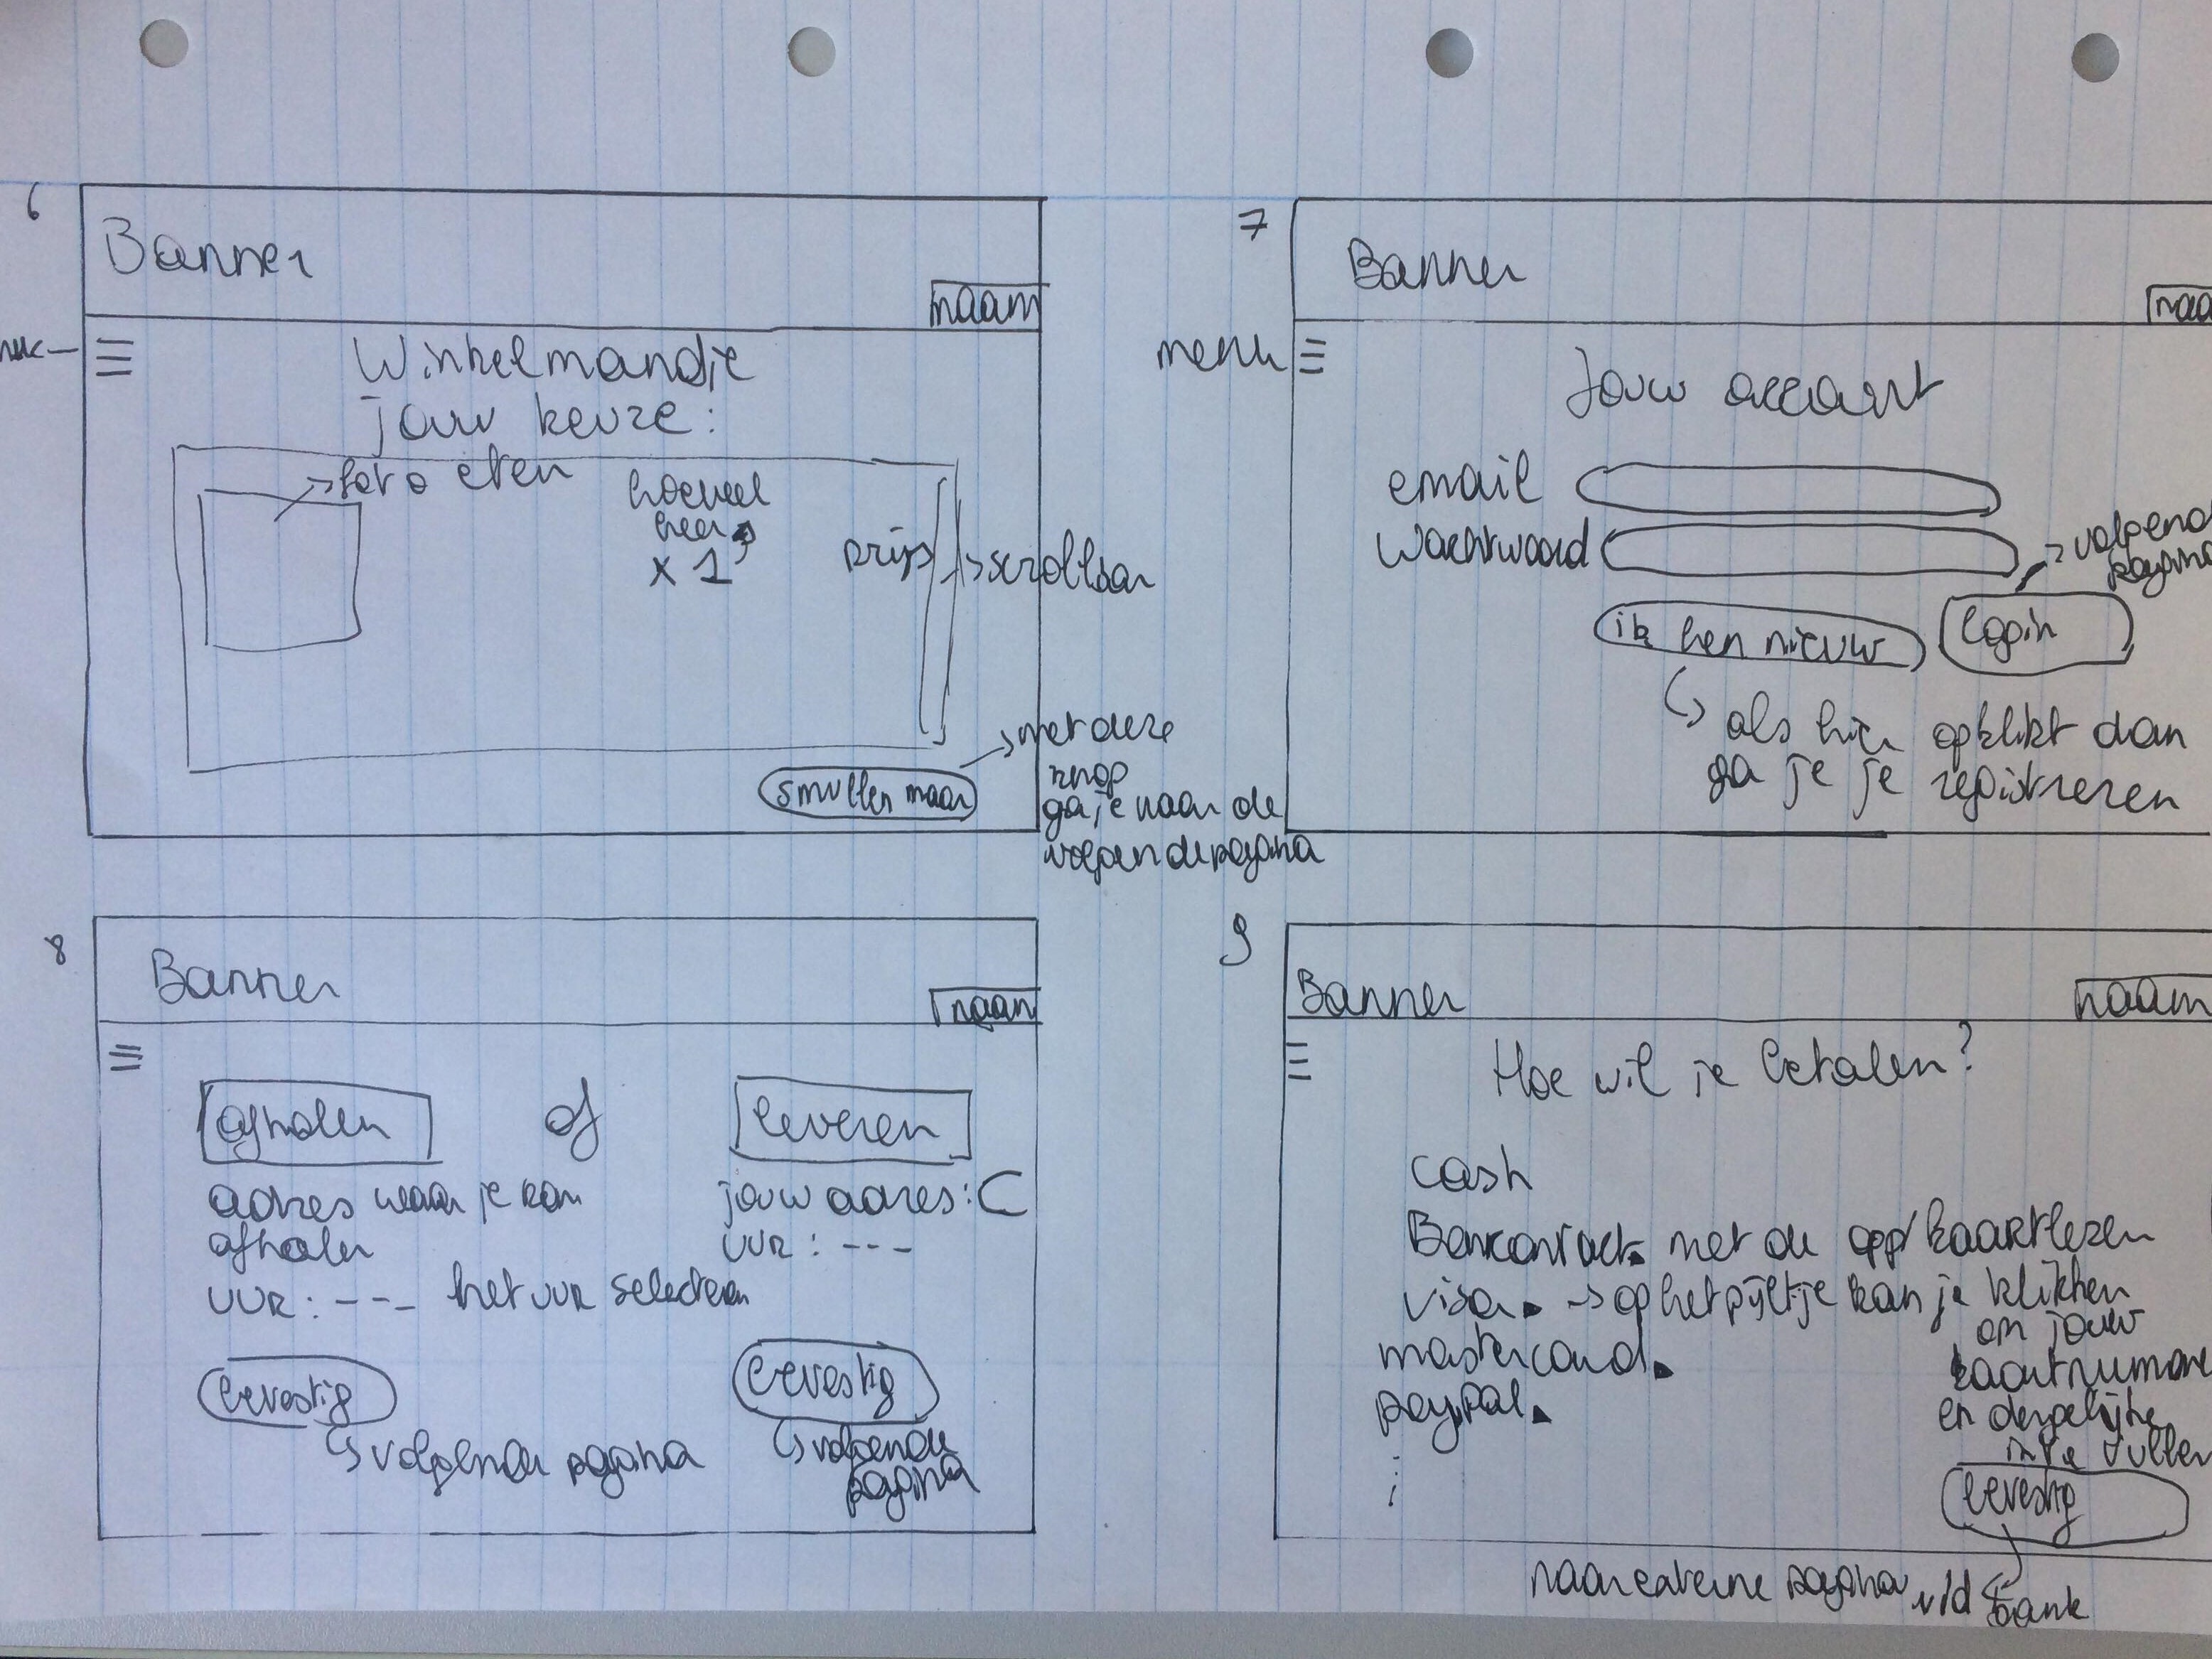 6
Banner
naam
Winkelmandje
jouw keuze:
foto eten
hoeveel
keer
x 1
prijs
scrollbar
smullen maar
met deze
knop
ga je naar de
volgende pagina
7
Banner
naa
menu
Jouw account
email
Wachtwoord
volgend
pagina
ik ben nieuw
login
als hier op klikt dan
ga je je registreren
8
Banner
naam
afhalen of leveren
adres waar je kan
afhalen
uur: --- het uur selecteren
jouw adres:
uur: ---
bevestig
volgende pagina
bevestig
volgende
pagina
9
Banner
naam
Hoe wil je betalen?
cash
Bancontact met de app/kaartlezer
visa → op het pijltje kan je klikken
om jouw
mastercard
kaartnumme
paypal
en dergelijke
in te vullen
bevestig
naar externe pagina v/d bank